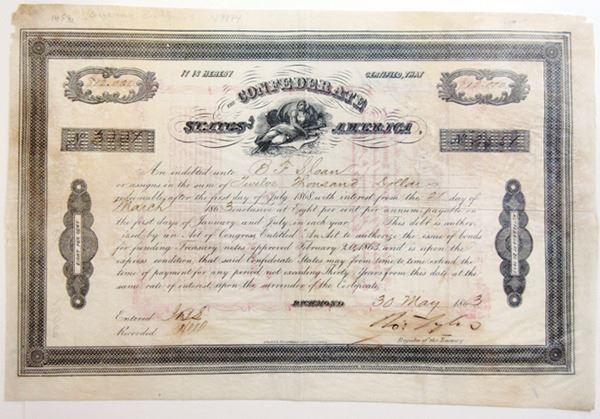 IT IS HEREBY CERTIFIED, THAT
THE CONFEDERATE
STATES OF AMERICA,
Are indebted unto B F Sloan
or assigns in the sum of Twelve Thousand Dollars
redeemable after the first day of July 1868, with interest from the day of
March 1863 inclusive at Eight per cent per annum payable on
the first days of January and July in each year. This debt is author-
ized by an Act of Congress Entitled "An Act to authorize the issue of bonds
for funding Treasury notes approved February 20, 1863 and is upon the
express condition, that said Confederate States may from time to time extend the
time of payment for any period not exceeding Thirty Years from this date at the
same rate of interest upon the surrender of the Certificate.
RICHMOND, 30 May 1863
Entered
Recorded
Register of the Treasury